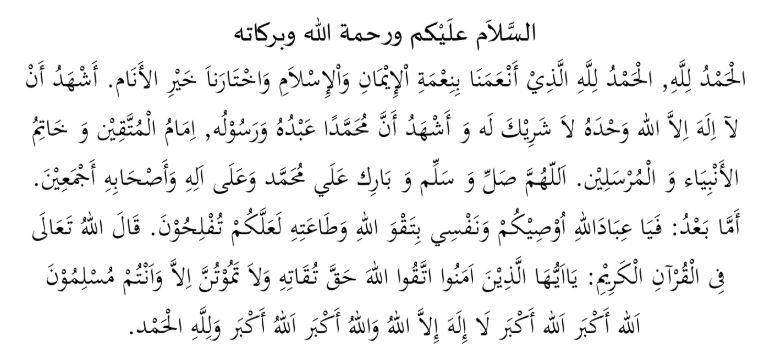 السَّلاَم علَيْكم ورحمة الله وبركاته
الحَمْدُ لِلَّهِ, الحَمْدُ لِلَّهِ الَّذِيْ أَنْعَمَنَا بِنِعْمَةِ اْلإِيْمَانِ وَاْلإِسْلاَمِ وَاخْتَارَناَ خَيْرِ الأَنَام. أَشْهَدُ أَنْ
لآ اِلَهَ اِلاَّ الله وَحْدَهُ لاَ شَرِيْكَ لَه وَ أَشْهَدُ أَنَّ مُحَمَّدًا عَبْدُهُ وَرَسُوْلُه, اِمَامُ الْمُتَّقِيْن وَ خَاتِمُ
الأَنْبِيَاء وَ الْمُرْسَلِيْن. اَللّهُمَّ صَلِّ وَ سَلِّم وَ بَارِك عَلَي مُحَمَّد وَعَلَى اَلِهِ وَأَصْحَابِهِ أَجْمَعِيْنَ.
أَمَّا بَعْدُ: فَيَا عِبَادَاللهِ اُوْصِيْكُمْ وَنَفْسِي بِتَقْوَ اللهِ وَطَاعَتِهِ لَعَلَّكُمْ تُفْلِحُوْنَ. قَالَ اللهُ تَعَالَى
فِى الْقُرْآنِ الْكَرِيْمِ: يَااَيُّهَا الَّذِيْنَ اَمَنُوا اتَّقُوا اللهَ حَقَّ تُقَاتِهِ وَلاَ تَمُوْتُنَّ اِلاَّ وَاَنْتُمْ مُسْلِمُوْنَ
اَلله أَكْبَر اَلله أَكْبَر لَا إِلَهَ إِلاَّ اللهُ وَاللهُ أَكْبَر اَللهُ أَكْبَر وَلِلَّهِ الحَمْد.